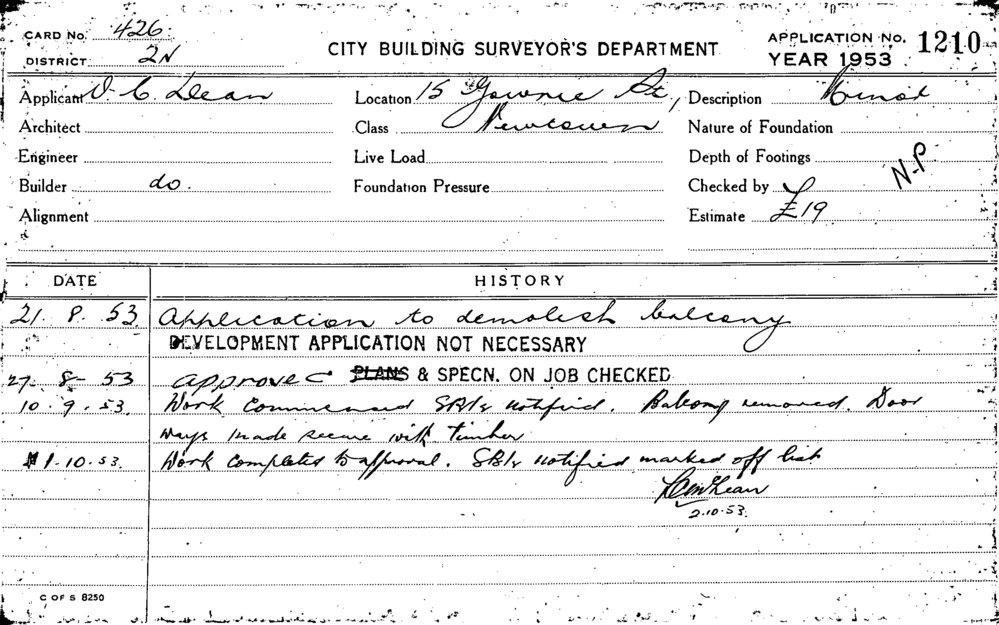 CARD No. 426.
DISTRICT 2N
CITY BUILDING SURVEYOR'S DEPARTMENT
APPLICATION No. 1210
YEAR 1953
Applicant D. C. Dean
Location 15 Gowrie St,
Description Minor
Architect
Class Newtown
Nature of Foundation
Engineer
Live Load
Depth of Footings
N.P
Builder do.
Foundation Pressure
Checked by
Alignment
Estimate £19
DATE HISTORY
21. 8. 53 Application to demolish balcony
DEVELOPMENT APPLICATION NOT NECESSARY
27- 8- 53 approved PLANS & SPECN. ON JOB CHECKED
10. 9. 53. Work commenced notified. Balcony removed. Door
ways made secure with timber
1. 10. 53. Work completed to approval. notified marked off list
2.10.53.
C OF S 8250